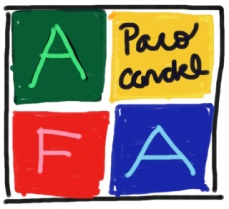 A
Paco
candel
F
A